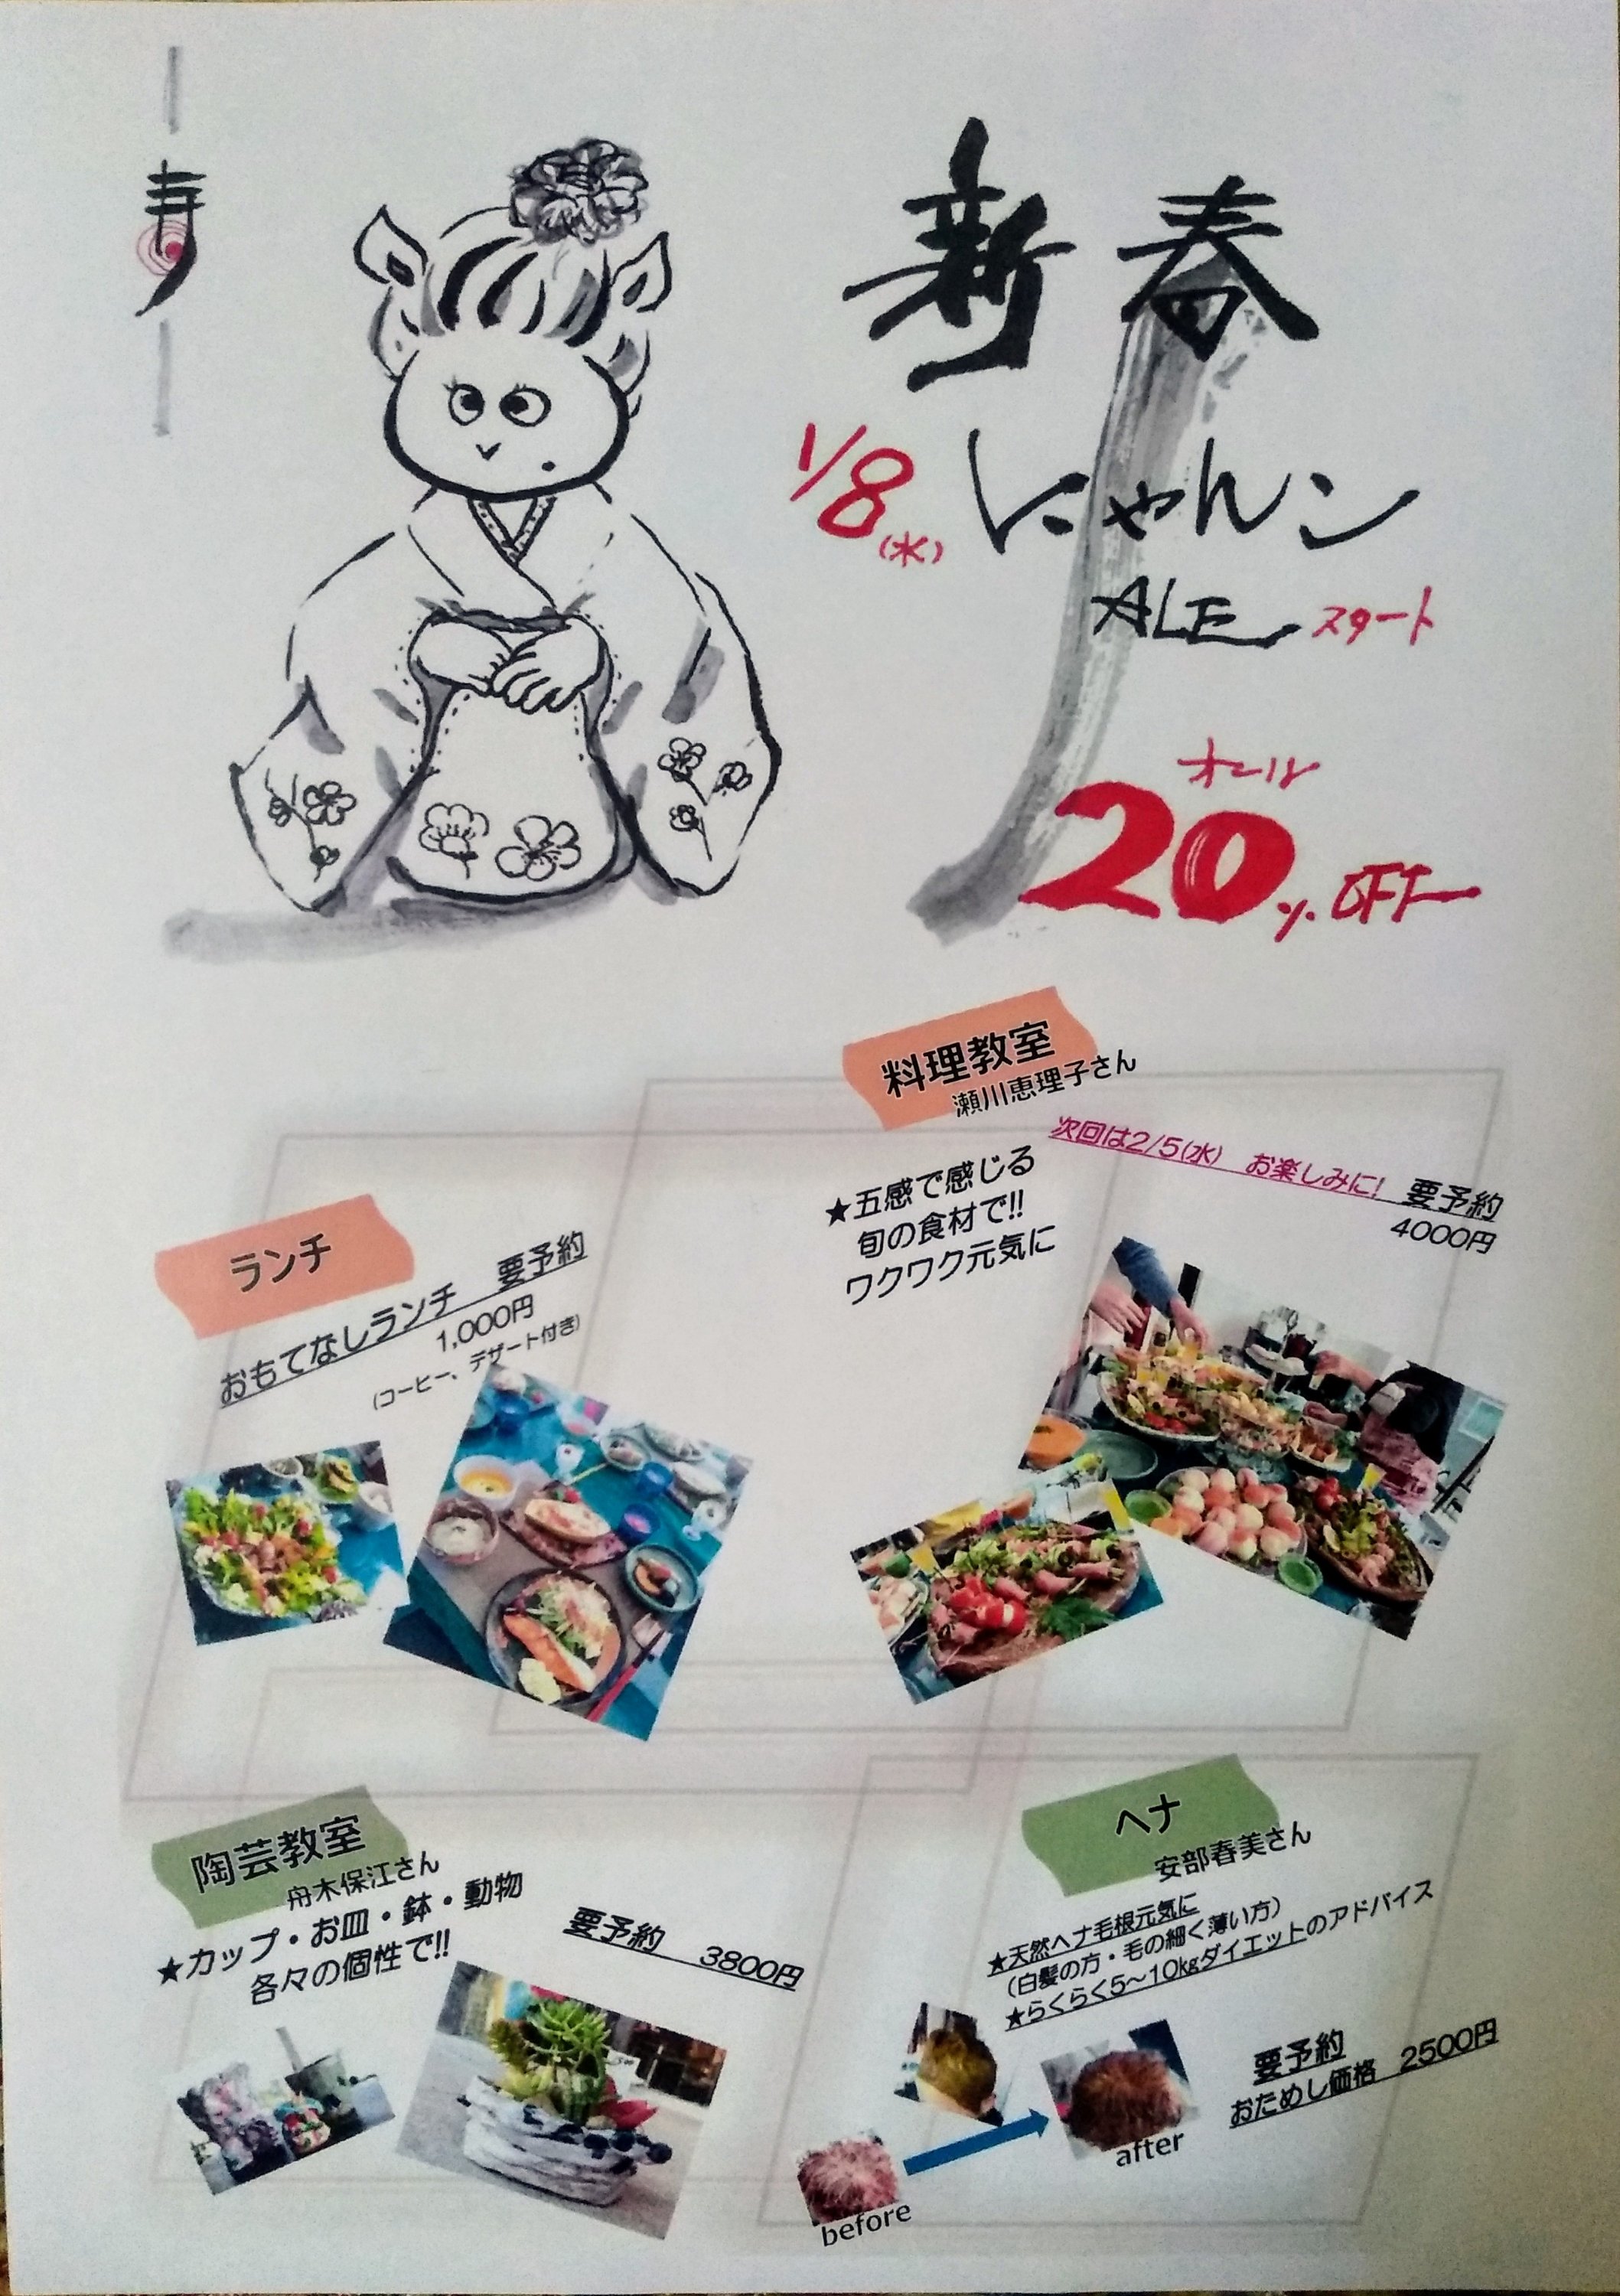 寿
新春
1/8(水)
にゃんン
ALE スタート
オール
20% OFF
料理教室
瀬川恵理子さん
次回は2/5(水) お楽しみに! 要予約
4000円
★五感で感じる
旬の食材で!!
ワクワク元気に
ランチ
おもてなしランチ 要予約
1,000円
(コーヒー、デザート付き)
陶芸教室
舟木保江さん
★カップ・お皿・鉢・動物
各々の個性で!!
要予約 3800円
ヘナ
安部春美さん
★天然ヘナ毛根元気に
(白髪の方・毛の細く薄い方)
★らくらく5~10kgダイエットのアドバイス
要予約
おためし価格 2500円
before
after